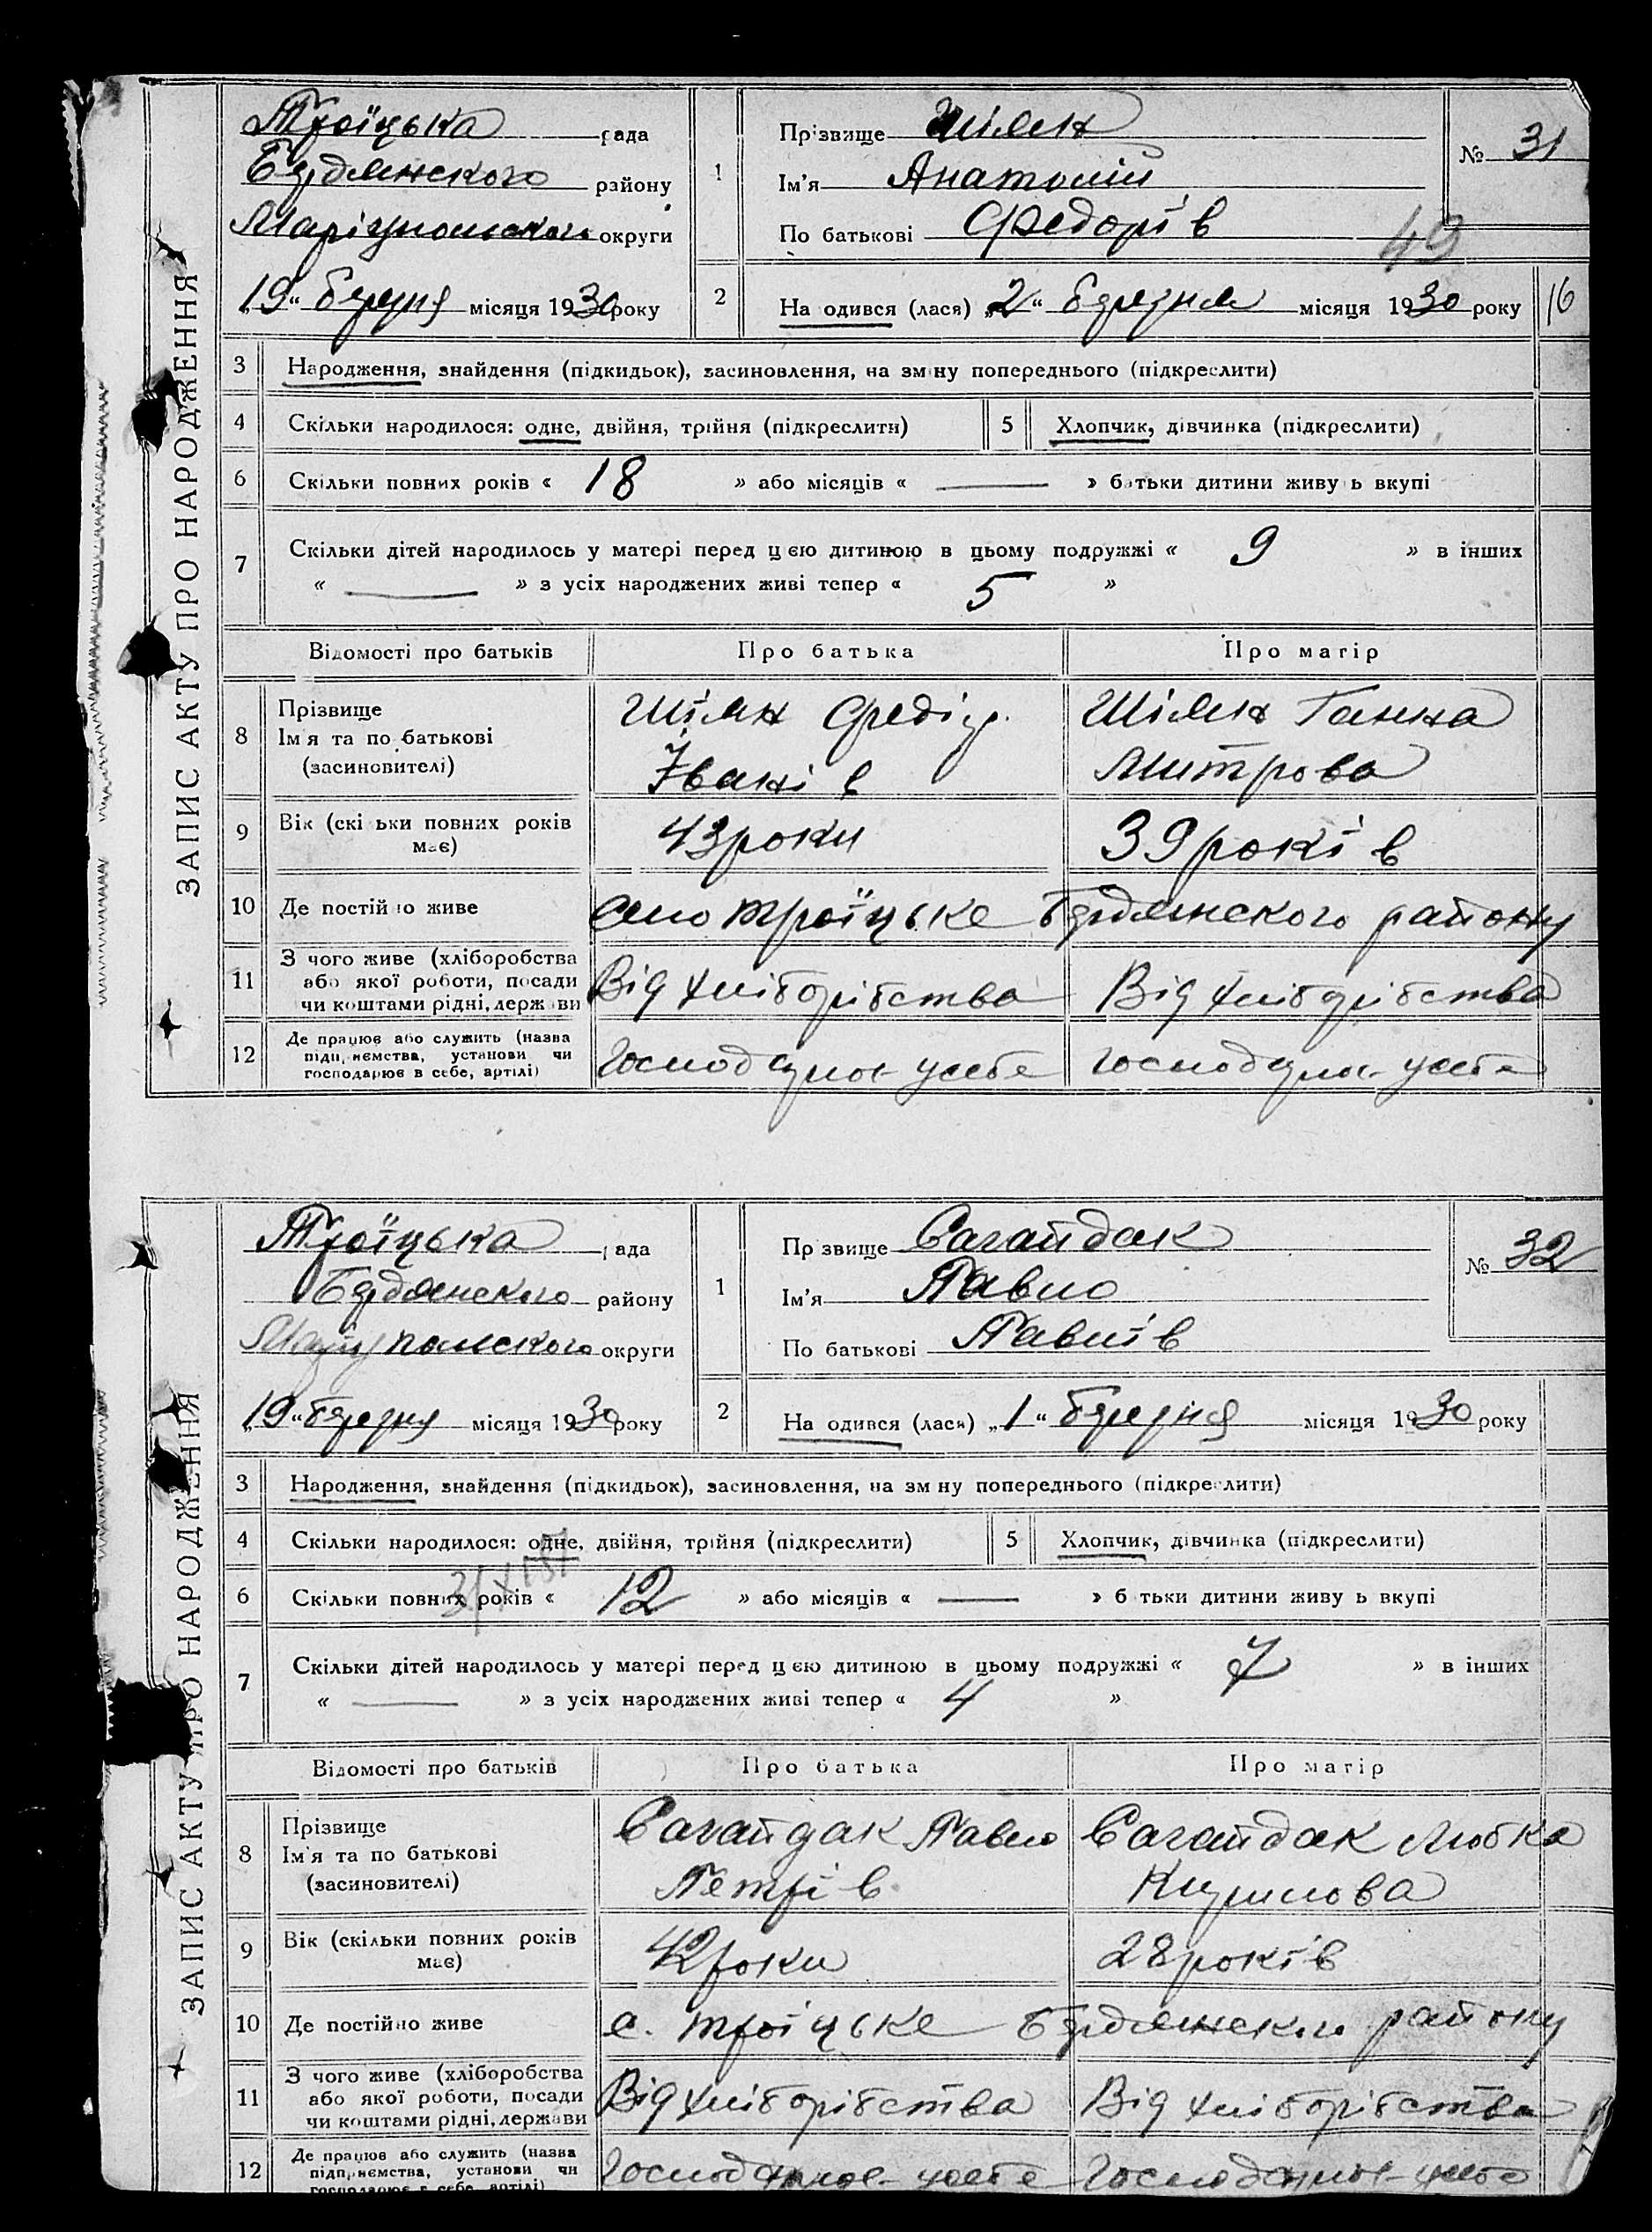 ЗАПИС АКТУ ПРО НАРОДЖЕННЯ
Троїцька рада
Бердянского району
Маріупольского округи
„19“ березня місяця 1930 року
1
Прізвище
Ім'я Анатолій
По батькові Федорів
№ 31
49
2
На одився (лася) „2“ березня місяця 1930 року
16
3 Народження, знайдення (підкидьок), засиновлення, на зміну попереднього (підкреслити)
4 Скільки народилося: одне, двійня, трійня (підкреслити) 5 Хлопчик, дівчинка (підкреслити)
6 Скільки повних років « 18 » або місяців « — » батьки дитини живу ь вкупі
7 Скільки дітей народилось у матері перед цєю дитиною в цьому подружжі « 9 » в інших
« — » з усіх народжених живі тепер « 5 »
Відомості про батьків Про батька Про матір
8 Прізвище
Ім'я та по батькові
(засиновителі)
Федір
Іванів
Ганна
Митрова
9 Вік (скі ьки повних років
має)
43 роки
39 років
10 Де постійно живе село Троїцьке Бердянского району
11 З чого живе (хліборобства
або якої роботи, посади
чи коштами рідні, держави
Від хліборібства Від хліборібства
12 Де працює або служить (назва
підприємства, установи чи
господарює в себе, артілі)
Господарює у себе Господарює у себе
ЗАПИС АКТУ ПРО НАРОДЖЕННЯ
Троїцька рада
Бердянского району
Маріупольского округи
„19“ березня місяця 1930 року
1
Пр звище Сагайдак
Ім'я Павло
По батькові Павлів
№ 32
2
На одився (лася) „1“ березня місяця 1930 року
3 Народження, знайдення (підкидьок), засиновлення, на зм ну попереднього (підкреслити)
4 Скільки народилося: одне, двійня, трійня (підкреслити) 5 Хлопчик, дівчинка (підкреслити)
6 Скільки повних років « 12 » або місяців « — » б тьки дитини живу ь вкупі
7 Скільки дітей народилось у матері перед цєю дитиною в цьому подружжі « 7 » в інших
« — » з усіх народжених живі тепер « 4 »
Відомості про батьків Про батька Про матір
8 Прізвище
Ім'я та по батькові
(засиновителі)
Сагайдак Павло
Петрів
Сагайдак Любка
Кирилова
9 Вік (скільки повних років
має)
42 роки
28 років
10 Де постійно живе с. Троїцьке Бердянского району
11 З чого живе (хліборобства
або якої роботи, посади
чи коштами рідні, держави
Від хліборібства Від хліборібства
12 Де працює або служить (назва
підприємства, установи чи
господарює в себе, артілі)
Господарює у себе Господарює у себе